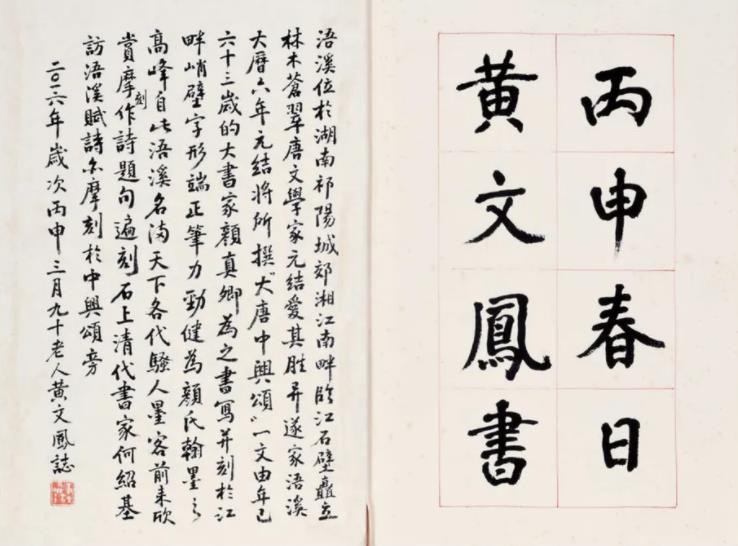 丙申春日
黄文鳳書
浯溪位於湖南祁陽城郊湘江南畔臨江石壁矗立
林木蒼翠唐文學家元結愛其胜异遂家浯溪
大曆六年元結將所撰“大唐中興頌”一文由年已
六十三歲的大書家顏真卿為之書寫并刻於江
畔峭壁字形端正筆力勁健為顏氏翰墨之
高峰自此浯溪名满天下各代騷人墨客前来欣
賞摩刻作詩題句遍刻石上清代書家何紹基
訪浯溪賦詩亦摩刻於中興頌旁
二〇一六年歲次丙申三月九十老人黄文鳳誌